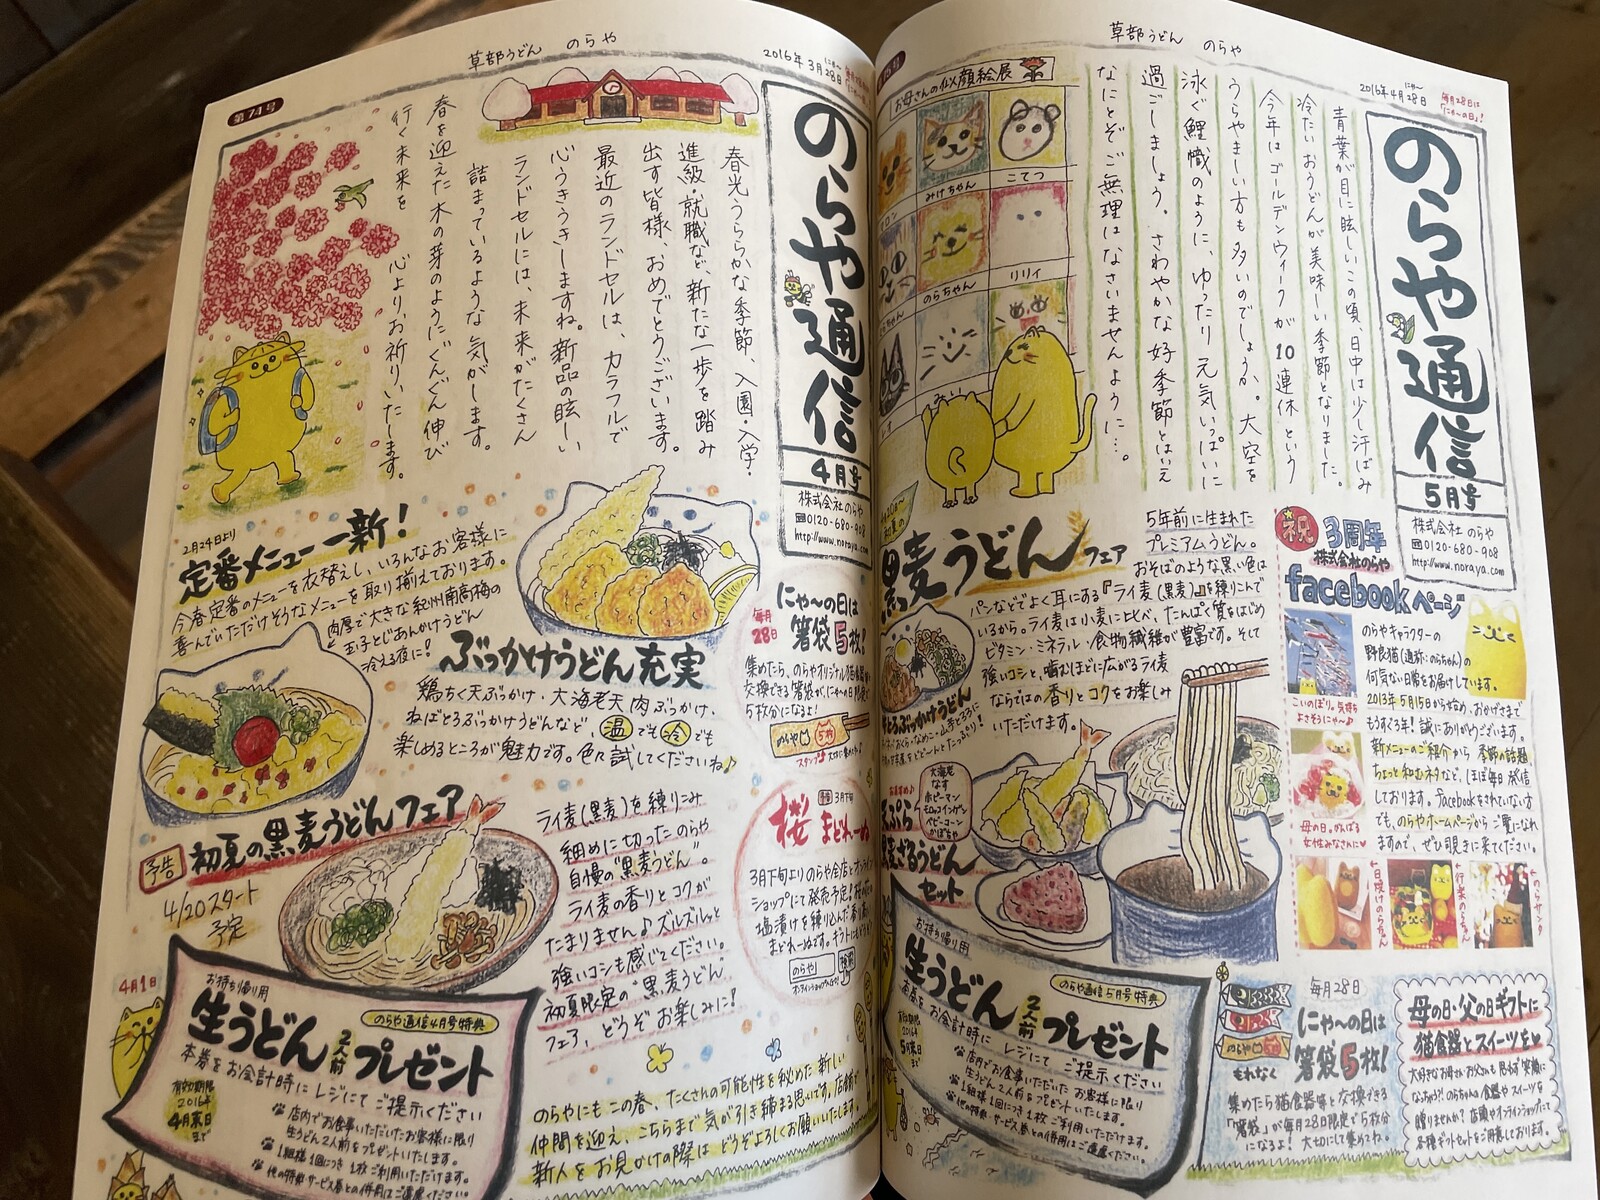 草部うどん のらや
2016年3月28日
第74号
のらや通信
4月号
株式会社のらや
0120-680-908
http://www.noraya.com
春光うららかな季節、入園・入学・
進級・就職など、新たな一歩を踏み
出す皆様、おめでとうございます。
最近のランドセルは、カラフルで
心うきうきしますね。新品の眩しい
ランドセルには、未来がたくさん
詰まっているような気がします。
春を迎えた木の芽のようにぐんぐん伸び
行く未来を 心よりお祈りいたします。
2月24日より
定番メニュー一新!
今春定番のメニューを衣替えし、いろんなお客様に
喜んでいただけそうなメニューを取り揃えております。
肉厚で大きな紀州南高梅の
玉子とじあんかけうどん
冷える夜に!
ぶっかけうどん充実
鶏ちく天ぶっかけ・大海老天肉ぶっかけ・
ねばとろぶっかけうどんなど、温でも冷でも
楽しめるところが魅力です。色々試してくださいね♪
毎月28日
にゃ〜の日は
箸袋5枚!
集めたら、のらやオリジナル猫食器
交換できる箸袋がにゃ〜の日限定で
5枚分になるよ!
のらや
5枚
予告
初夏の黒麦うどんフェア
4/20スタート
予定
ライ麦(黒麦)を練りこみ
細めに切ったのらや
自慢の“黒麦うどん”。
ライ麦の香りとコクが
たまりません♪ズルズルんと
強いコシも感じてください。
初夏限定の“黒麦うどん”
フェア、どうぞお楽しみに!
桜
3月下旬
まどれーぬ
3月下旬よりのらや全店とオンライン
ショップにて発売予定!
塩漬けを練り込んだ
まどれーぬです。
のらや
4月1日
お持ち帰り用
のらや通信4月号特典
生うどん2人前プレゼント
本券をお会計時にレジにてご提示ください
有効期限
2016年
4月末日
まで
店内でお食事いただいたお客様に限り
生うどん2人前をプレゼントいたします。
1組様1回につき1枚ご利用いただけます。
他の特典・サービス券との併用はご遠慮ください。
のらやにもこの春、たくさんの可能性を秘めた新しい
仲間を迎え、こちらまで気が引き締まる思いです。店舗で
新人をお見かけの際はどうぞよろしくお願いいたします!
草部うどん のらや
2016年4月28日
毎月28日は
「にゃ〜の日」!
のらや通信
5月号
株式会社のらや
0120-680-908
http://www.noraya.com
青葉が目に眩しいこの頃、日中は少し汗ばみ
冷たいおうどんが美味しい季節となりました。
今年はゴールデンウィークが10連休という
うらやましい方も多いのでしょうか。大空を
泳ぐ鯉幟のように、ゆったり元気いっぱいに
過ごしましょう。さわやかな好季節とはいえ
なにとぞご無理はなさいませんように…。
お母さんの似顔絵展
みけちゃん
こてつ
のらちゃん
リリィ
黒麦うどんフェア
5年前に生まれた
プレミアムうどん。
おそばのような黒い色は
パンなどでよく耳にある『ライ麦(黒麦)』を練りこんで
いるから。ライ麦は小麦に比べ、たんぱく質をはじめ
ビタミン・ミネラル・食物繊維が豊富です。そして
強いコシと、噛むほどに広がるライ麦
ならではの香りとコクをお楽しみ
いただけます。
とろぶっかけうどん
大海老
なす
ピーマン
モロッコインゲン
ベビーコーン
かぼちゃ
天ぷら
黒麦ざるうどん
セット
祝
3周年
株式会社のらや
facebookページ
のらやキャラクターの
野良猫(通称:のらちゃん)の
何気ない日常をお届けしています。
2013年5月15日からはじめ、おかげさまで
もうすぐ3年!誠にありがとうございます。
新メニューのご紹介から季節の話題、
ちょっと和むネタなど、ほぼ毎日発信
しております。facebookをされていない方
でも、のらやホームページからご覧になれ
ますので、ぜひ覗きに来てください。
こいのぼり。気持ち
よさそうにゃ〜♪
母の日。がんばる
女性みなさんに♥
日焼けのらちゃん
行楽のらちゃん
のらサンタ
お持ち帰り用
のらや通信5月号特典
生うどん2人前プレゼント
本券をお会計時にレジにてご提示ください
有効期限
2016年
5月末日
まで
店内でお食事いただいたお客様に限り
生うどん2人前をプレゼントいたします。
1組様1回につき1枚ご利用いただけます。
他の特典・サービス券との併用はご遠慮ください。
毎月28日
にゃ〜の日は
もれなく
箸袋5枚!
集めたら猫食器等と交換できる
「箸袋」が毎月28日限定で5枚分
になるよ!大切に集めてね。
母の日・父の日ギフトに
猫食器とスイーツを
贈りませんか?店頭やオンラインショップにて
各種ギフトセットをご用意しております。